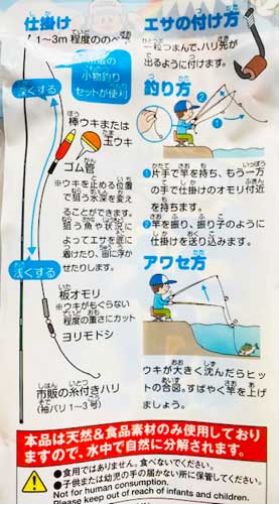 仕掛け
1~3m程度ののべ
市販の
小物釣り
セットが便利
深くする
棒ウキまたは
玉ウキ
ゴム管
※ウキを止める位置
で狙う水深を変え
ることができます。
狙う魚や状況に
よってエサを底に
着けたり、宙に浮か
せたりします。
浅くする
板オモリ
※ウキがもぐらない
程度の重さにカット
ヨリモドシ
市販の糸付きハリ
(袖バリ1~3号)
エサの付け方
一粒つまんで、ハリ先が
出るように付けます。
釣り方
②
①
❶片手で竿を持ち、もう一方
の手で仕掛けのオモリ付近
を持ちます。
❷竿を振り、振り子のように
仕掛けを送り込みます。
アワセ方
ウキが大きく沈んだらヒッ
トの合図。すばやく竿を上げ
ましょう。
本品は天然&食品素材のみ使用しており
ますので、水中で自然に分解されます。
●食用ではありません。食べないでください。
●子供または幼児の手の届かない所に保管してください。
Not for human consumption.
Please keep out of reach of infants and children.